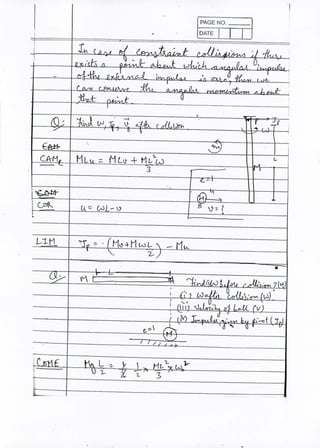 PAGE NO.
DATE
In case of constraint collisions if there
exists a point about which angular impulse
of the external impulse is zero, then we
can conserve the angular momentum about
that point.
Q: find ω, Ip, v after collision.
CAMp MLu = MLv + ML²ω
3
e=1
L
M
u
v=?
COR u = ωL - v
LIM Ip = (Mv + MωL) - Mu
2
Q. M L
find (i) ω before collision? (ω)
(ii) ω after collision (ω)
(iii) Velocity of ball (v)
(iv) Impulse given by pivot (Ip)
e=1
M
COME Mg L = 1 × ML² × ω²
2 2 3